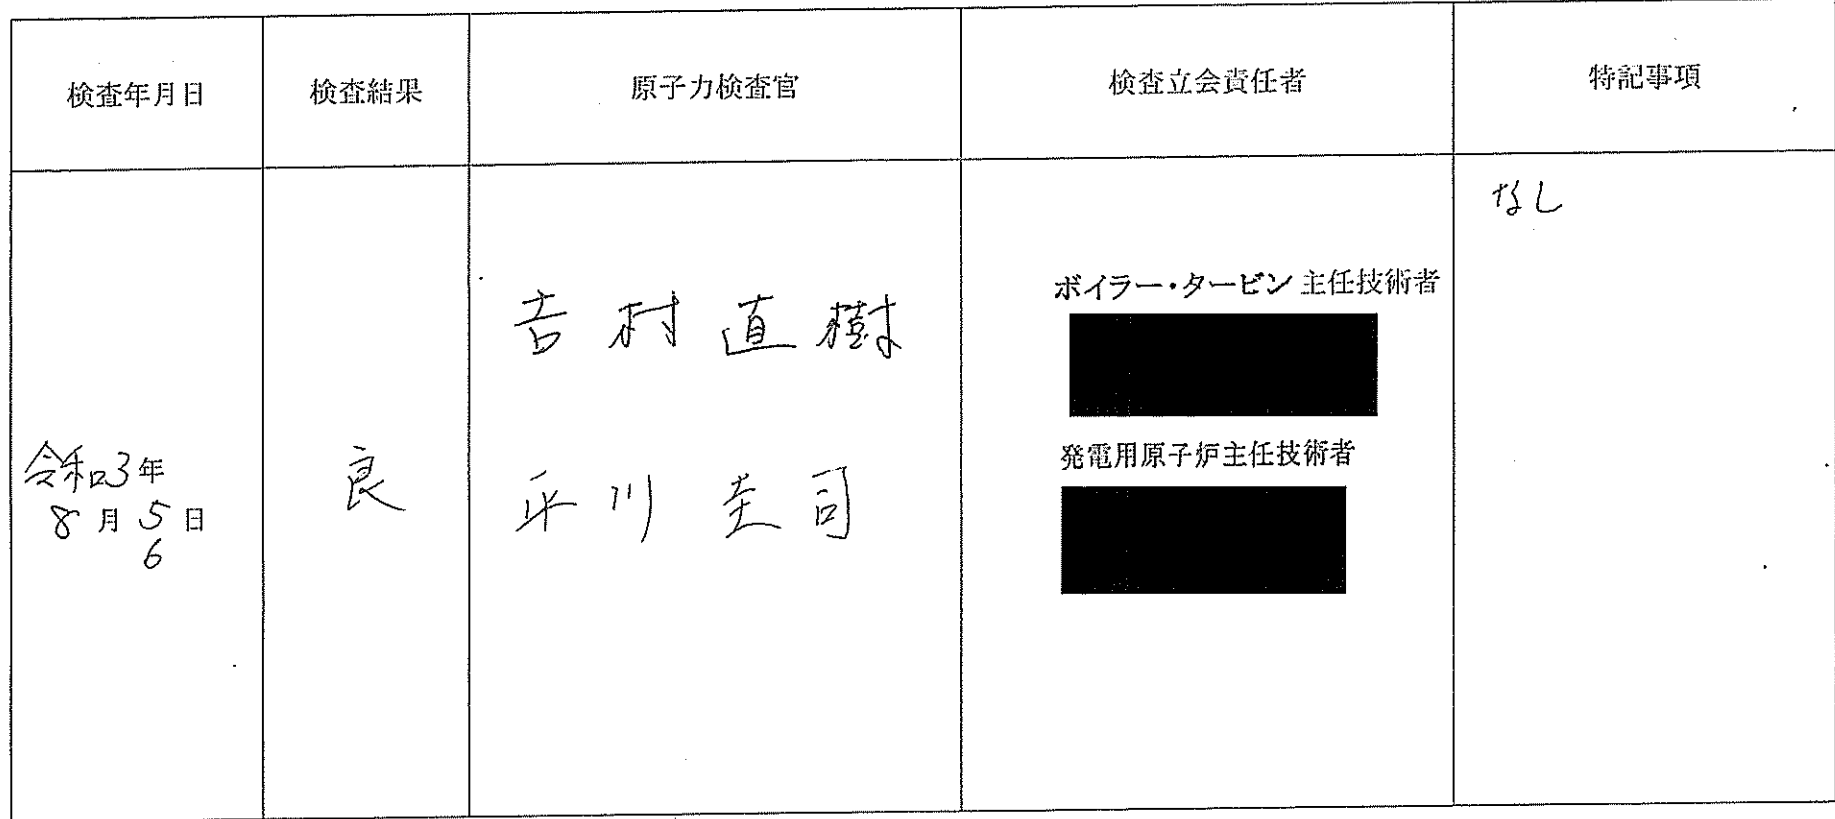 検査年月日
検査結果
原子力検査官
検査立会責任者
特記事項
令和3年
8月5日
6
良
吉村直樹
平川圭司
ボイラー・タービン 主任技術者
発電用原子炉主任技術者
なし